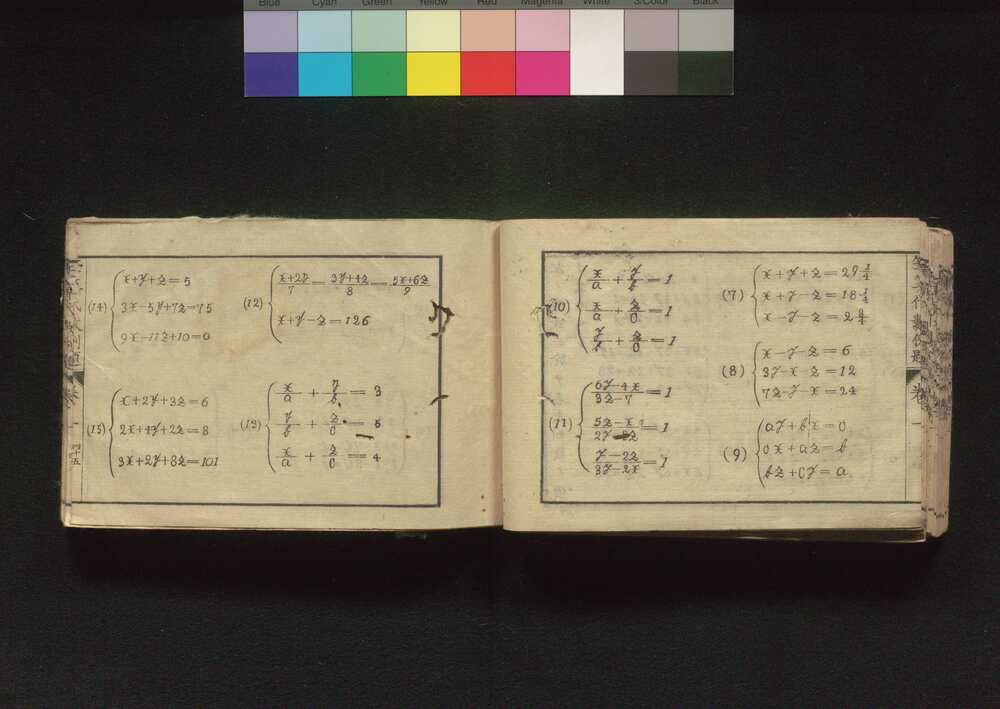 Blue Cyan Green Yellow Red Magenta White 3/Color Black
(7)
x+y+z=29 1/4
x+y-z=18 1/4
x-y-z=2 3/4
(8)
x-y-z=6
3y-x-z=12
7z-y-x=24
(9)
ay+bx=0
cx+az=b
bz+cy=a
(10)
x/a + y/b = 1
x/a + z/c = 1
y/b + z/c = 1
(11)
6y-4x/3z-7 = 1
5z-x/2y-3z = 1
y-2z/3y-2x = 1
(12)
x+2y/7 = 3y+4z/8 = 5x+6z/9
x+y-z=126
(13)
x/a + y/b = 3
y/b + z/c = 5
x/a + z/c = 4
(14)
x+y+z=5
3x-5y+7z=75
9x-11z+10=0
(15)
x+2y+3z=6
2x+4y+2z=8
3x+2y+8z=101
四十五